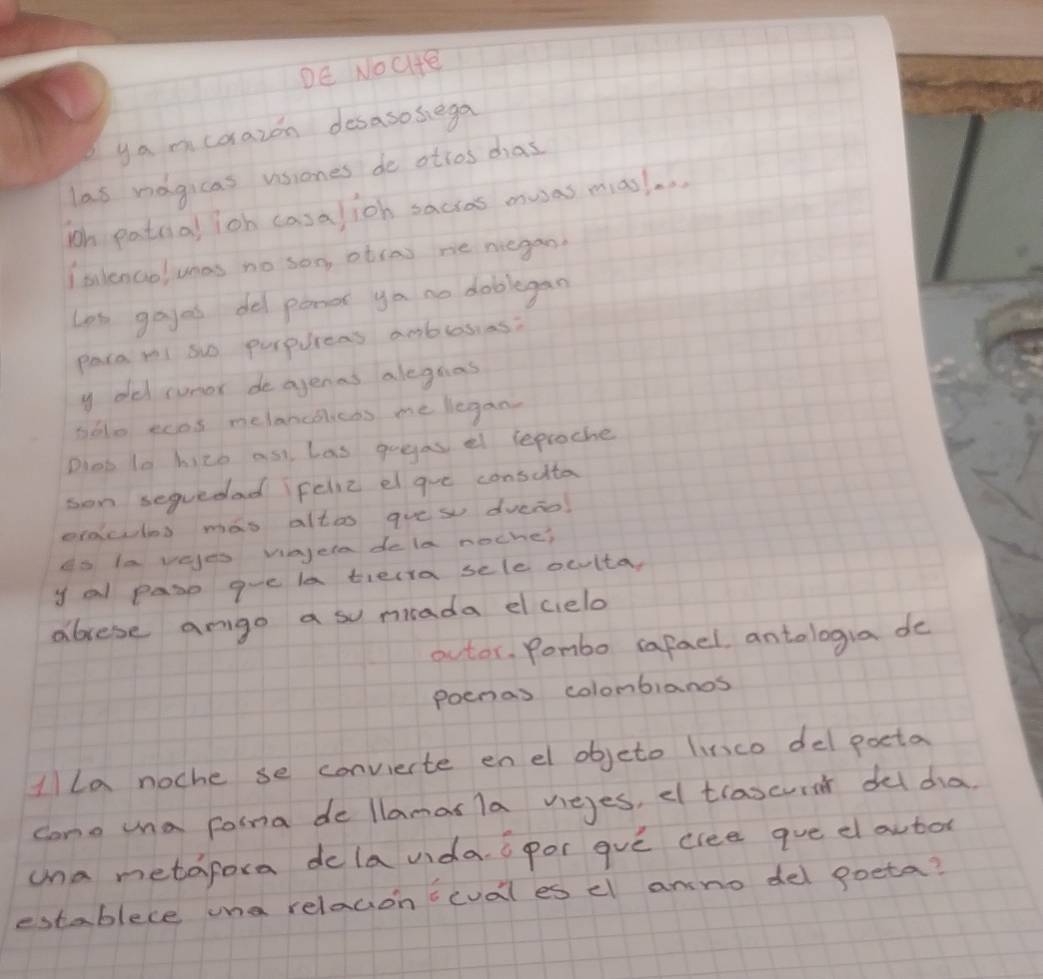 DE NOCHE
ya mi corazón desasosiega
las mágicas visiones de otros días
¡oh patria! ¡oh casa! ¡oh sacras musas mías!...
¡silencio! unas no son, otras me niegan.
Los gajos del pomor ya no doblegan
para mí sus purpúreas ambrosias:
y del rumor de ajenas alegrias
sólo ecos melancólicos me llegan
Dios lo hizo así. Las quejas el reproche
son seguedad ¡feliz el que consulta
oráculos más altos que su dueño!
es la vejes viajera de la noche;
y al paso que la tierra sele oculta,
ábrese amigo a su mirada el cielo
autor. Pombo rafael. antologia de
poemas colombianos
1) La noche se convierte en el objeto lirico del poeta
como una forma de llamar la viejes, el trascurrir del dia.
una metáfora de la vida. ¿por qué cree que el autor
establece una relación ¿cuál es el animo del poeta?